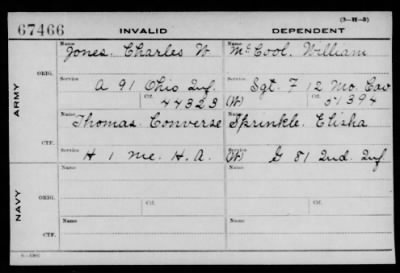 (3-11-3)
67466 INVALID DEPENDENT
ARMY
ORIG.
Name Jones, Charles W Name McCool, William
Service A 91 Ohio Inf. Service Sgt. F 12 Mo. Cav
Ctf. 44323 (W) Ctf. 51394
CTF.
Name Thomas, Converse Name Sprinkle, Elisha
Service H 1 Me. H.A. (W) Service G 81 Ind. Inf.
NAVY
ORIG.
Name Name
Service Service
Ctf. Ctf.
CTF.
Name Name